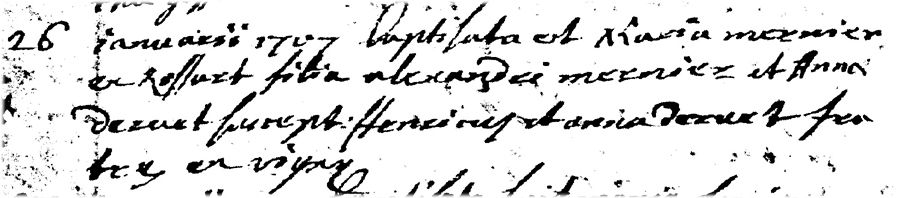 26 januarii 1707 baptisata est Maria mernier
ex Rossart filia alexandri mernier et Anna
deruet suscept: Henricus et anna Deruet fra
tres ex